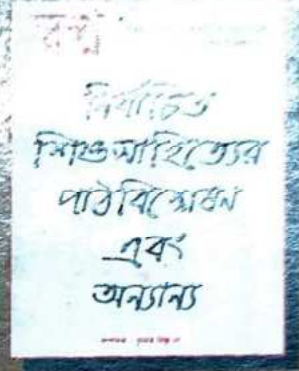 নির্বাচিত
শিশুসাহিত্যের
পাঠবিশ্লেষণ
এবং
অন্যান্য